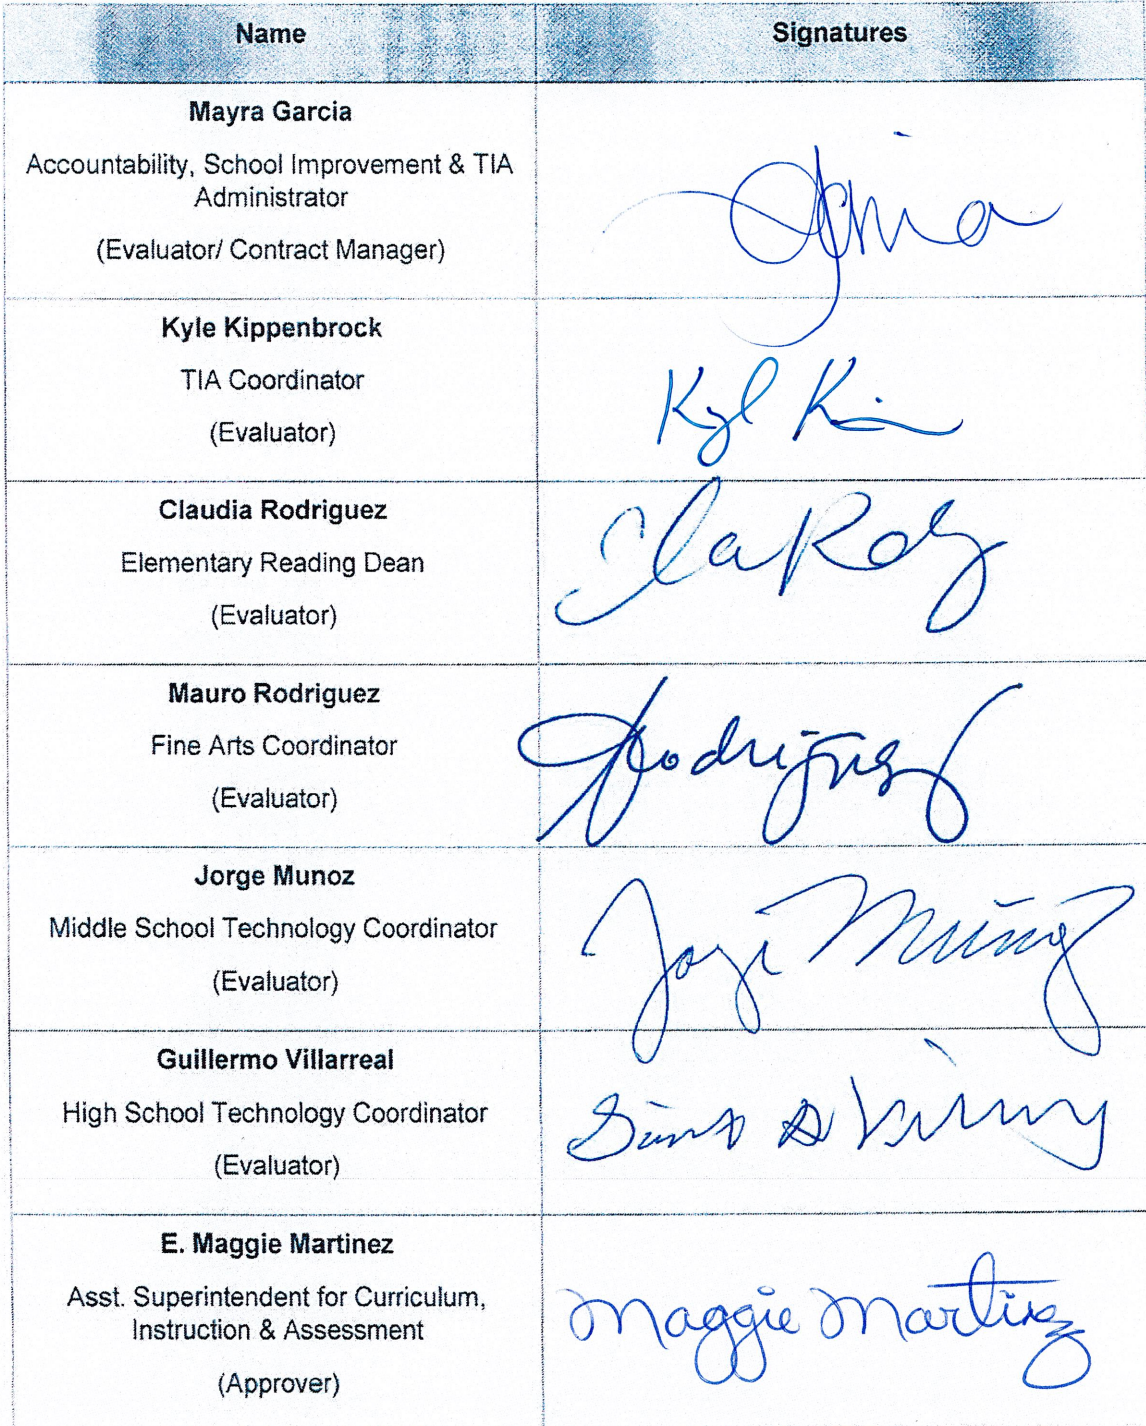 Name Signatures
Mayra Garcia
Accountability, School Improvement & TIA
Administrator
(Evaluator/ Contract Manager)
Kyle Kippenbrock
TIA Coordinator
(Evaluator)
Kyl
Claudia Rodriguez
Elementary Reading Dean
(Evaluator)
Mauro Rodriguez
Fine Arts Coordinator
(Evaluator)
Rodriguez
Jorge Munoz
Middle School Technology Coordinator
(Evaluator)
Guillermo Villarreal
High School Technology Coordinator
(Evaluator)
E. Maggie Martinez
Asst. Superintendent for Curriculum,
Instruction & Assessment
(Approver)
Maggie Martinez